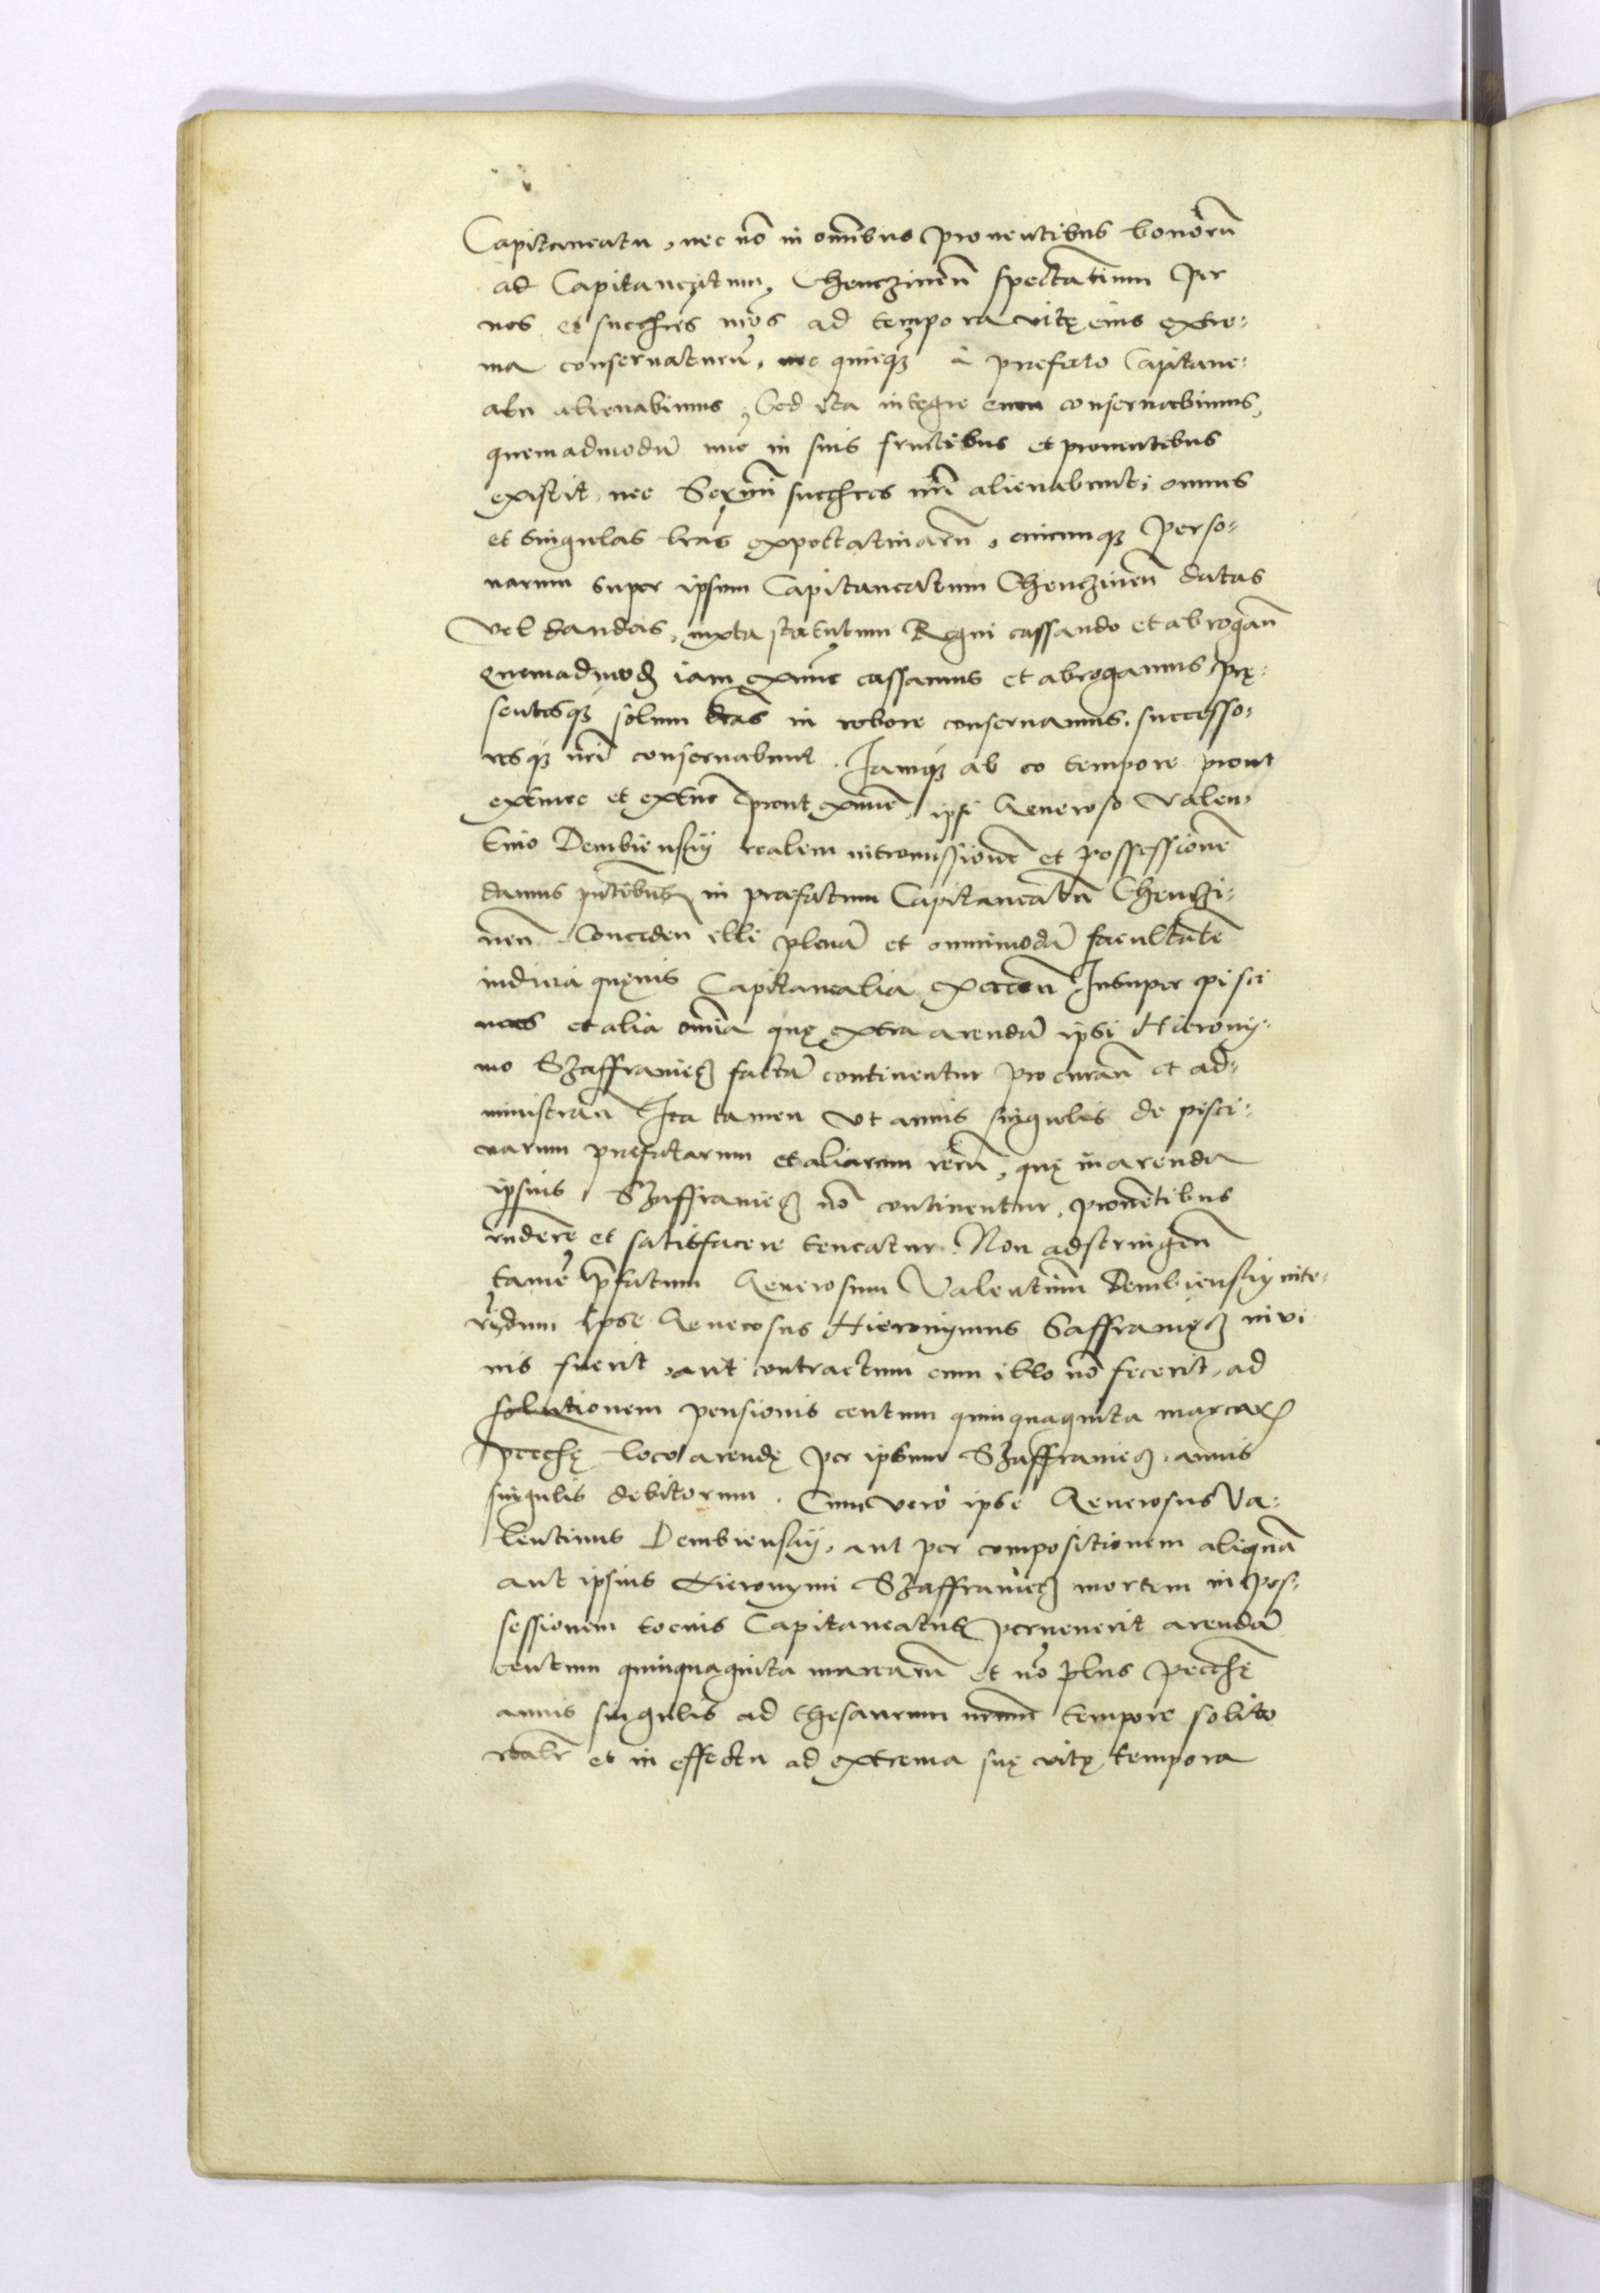 Capitaneatu, nec nõ in omĩbus prouentibus bonorũ
ad Capitaneatum, Chenczineñ spectantium per
nos et succhres nr̃os ad tempora vitę eius extre-
ma conseruaturũ, nec quicq3 à prefato Capitane-
atu alienabimus, Sed ita integre eum conseruabimus,
quemadmodũ nũc in suis fructibus et prouentibus
existit, nec Sermi succhres nr̃i alienabunt; omnes
et singulas lr̃as expectatiuarũ, cuicumq3 perso-
narum super ipsum Capitaneatum Chenczineñ datas
vel dandas, iuxta statutum Regni cassando et abrogañ
quemadmod3 iam exnũc cassamus et abrogamus, pre-
sentesq3 solum lr̃as in robore conseruamus, successo-
resq3 nr̃i conseruabunt. Iamq3 ab eo tempore prout
extunc et extũc prout exnũc, ipsi Generoso Valen-
tino Dembiensky realem intromissionẽ et possessionẽ
damus pñtibus in praefatum Capitaneatũ Chenczi-
neñ Conceden illi plenã et omnimodã facultatẽ
iudicia queuis Capitanealia exerceñ Insuper pisci
nas et alia omĩa quę extra arendã ipsi Hierony-
mo Szaffraniecz factã continentur procurañ et ad-
ministrañ Ita tamen vt annis singulis de pisci-
narum prefatarum et aliarum rerũ, quę in arenda
ipsius Szaffraniecz nõ continentur, prouẽtibus
rñdere et satisfacere teneatur. Non adstringeñ
tamẽ p̃fatum Generosum Valentinũ Dembiensky inte-
rỳdum ipse Generosus Hieronymus Saffraniecz in vi
uis fuerit, aut contractum cum illo nõ fecerit, ad
solutionem pensionis centum quinquaginta marcar3
pecchę loco arendę per ipsum Szaffraniecz, annis
singulis debitorum. Cum vero ipse Generosus Va-
lentinus Dembiensky, aut per compositionem aliquã
aut ipsius Hieronymi Szaffraniecz mortem in pos-
sessionem tocius Capitaneatus peruenerit arendã
centum quinquaginta marcarũ et nõ plus pecchę
annis singulis ad thesaurum nrũm tempore solito
realr̃ et in effectu ad extrema suę vitę tempora